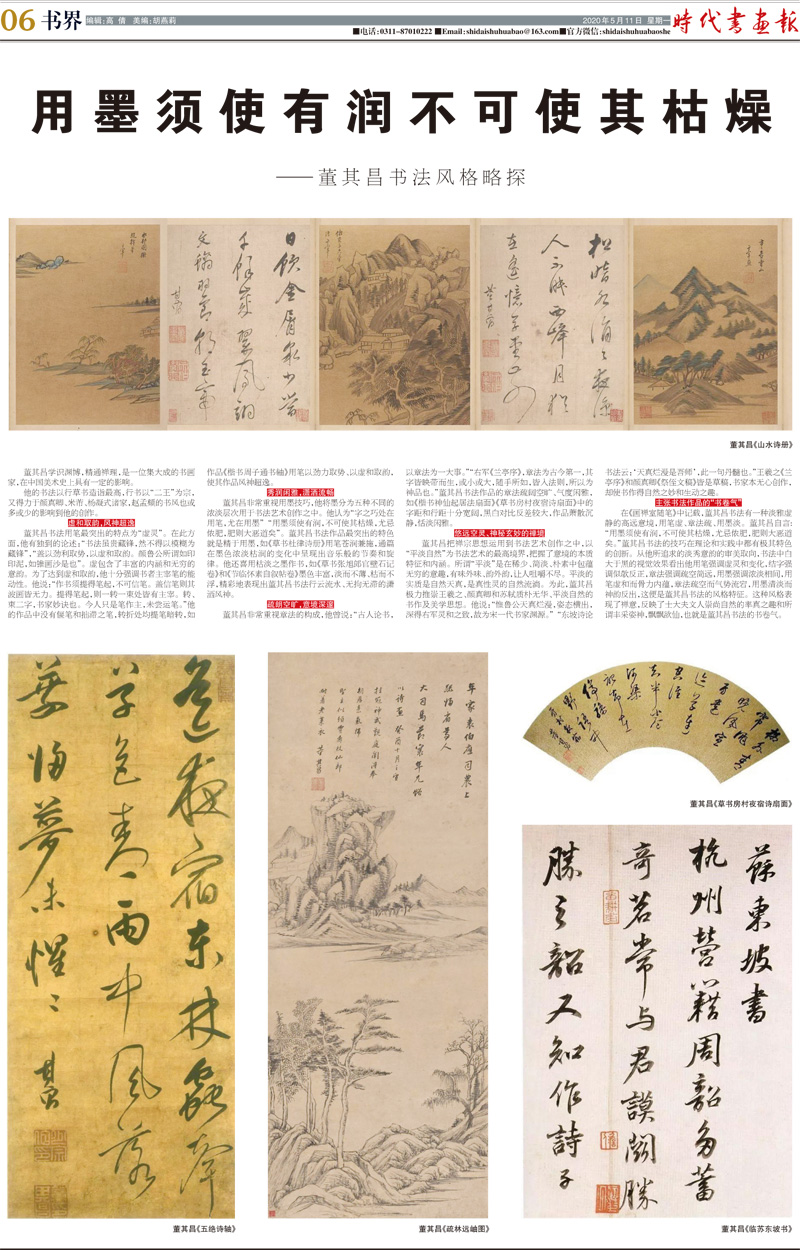 06 书界 编辑:高 倩 美编:胡燕莉
2020年5月11日 星期一
时代书画报
■电话:0311-87010222 ■Email:shidaishuhuabao@163.com■官方微信:shidaishuhuabaoshe
用墨须使有润不可使其枯燥
——董其昌书法风格略探
董其昌《山水诗册》
董其昌学识渊博,精通禅理,是一位集大成的书画
家,在中国美术史上具有一定的影响。
他的书法以行草书造诣最高,行书以“二王”为宗,
又得力于颜真卿、米芾、杨凝式诸家,赵孟頫的书风也或
多或少的影响到他的创作。
虚和取韵,风神超逸
董其昌书法用笔最突出的特点为“虚灵”。在此方
面,他有独到的论述:“书法虽贵藏锋,然不得以模糊为
藏锋”,“盖以劲利取势,以虚和取韵。颜鲁公所谓如印
印泥,如锥画沙是也”。虚包含了丰富的内涵和无穷的
意韵。为了达到虚和取韵,他十分强调书者主宰笔的能
动性。他说:“作书须提得笔起,不可信笔。盖信笔则其
波画皆无力。提得笔起,则一转一束处皆有主宰。转、
束二字,书家妙诀也。今人只是笔作主,未尝运笔。”他
的作品中没有偃笔和拙滞之笔,转折处均提笔暗转,如
作品《楷书周子通书轴》用笔以劲力取势,以虚和取韵,
使其作品风神超逸。
秀润闲雅,潇洒流畅
董其昌非常重视用墨技巧,他将墨分为五种不同的
浓淡层次用于书法艺术创作之中。他认为“字之巧处在
用笔,尤在用墨” “用墨须使有润,不可使其枯燥,尤忌
秾肥,肥则大恶道矣”。董其昌书法作品最突出的特色
就是精于用墨,如《草书杜律诗册》用笔苍润兼施,通篇
在墨色浓淡枯润的变化中呈现出音乐般的节奏和旋
律。他还喜用枯淡之墨作书,如《草书张旭郎官壁石记
卷》和《节临怀素自叙帖卷》墨色丰富,淡而不薄,枯而不
浮,精彩地表现出董其昌书法行云流水、无拘无滞的潇
洒风神。
疏朗空旷,意境深邃
董其昌非常重视章法的构成,他曾说:“古人论书,
以章法为一大事。”“右军《兰亭序》,章法为古今第一,其
字皆映带而生,或小或大,随手所如,皆入法则,所以为
神品也。”董其昌书法作品的章法疏阔空旷、气度闲雅,
如《楷书神仙起居法扇面》《草书房村夜宿诗扇面》中的
字距和行距十分宽阔,黑白对比反差较大,作品萧散沉
静,恬淡闲雅。
悠远空灵,神秘玄妙的禅境
董其昌把禅宗思想运用到书法艺术创作之中,以
“平淡自然”为书法艺术的最高境界,把握了意境的本质
特征和内涵。所谓“平淡”是在稀少、简淡、朴素中包蕴
无穷的意趣,有味外味、韵外韵,让人咀嚼不尽。平淡的
实质是自然天真,是真性灵的自然流淌。为此,董其昌
极力推崇王羲之、颜真卿和苏轼质朴无华、平淡自然的
书作及美学思想。他说:“惟鲁公天真烂漫,姿态横出,
深得右军灵和之致,故为宋一代书家渊源。” “东坡诗论
书法云:‘天真烂漫是吾师’,此一句丹髓也。”王羲之《兰
亭序》和颜真卿《祭侄文稿》皆是草稿,书家本无心创作,
却使书作得自然之妙和生动之趣。
主张书法作品的“书卷气”
在《画禅室随笔》中记载,董其昌书法有一种淡雅虚
静的高远意境,用笔虚、章法疏、用墨淡。董其昌自言:
“用墨须使有润,不可使其枯燥,尤忌秾肥,肥则大恶道
矣。”董其昌书法的技巧在理论和实践中都有极其特色
的创新。从他所追求的淡秀意韵的审美取向,书法中白
大于黑的视觉效果看出他用笔强调虚灵和变化,结字强
调似欹反正,章法强调疏空简远,用墨强调浓淡相间,用
笔虚和而骨力内蕴,章法疏空而气势流宕,用墨清淡而
神韵反出,这便是董其昌书法的风格特征。这种风格表
现了禅意,反映了士大夫文人崇尚自然的率真之趣和所
谓丰采姿神,飘飘欲仙,也就是董其昌书法的书卷气。
董其昌《草书房村夜宿诗扇面》
蘇東坡書
杭州營籍周韶多蓄
奇茗常与君謨鬪勝
勝之韶又知作詩子
董其昌《五绝诗轴》
董其昌《疏林远岫图》
董其昌《临苏东坡书》